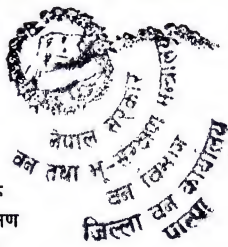 नेपाल सरकार
वन तथा भू-संरक्षण मन्त्रालय
वन विभाग
जिल्ला वन कार्यालय
पाल्पा
क
षण